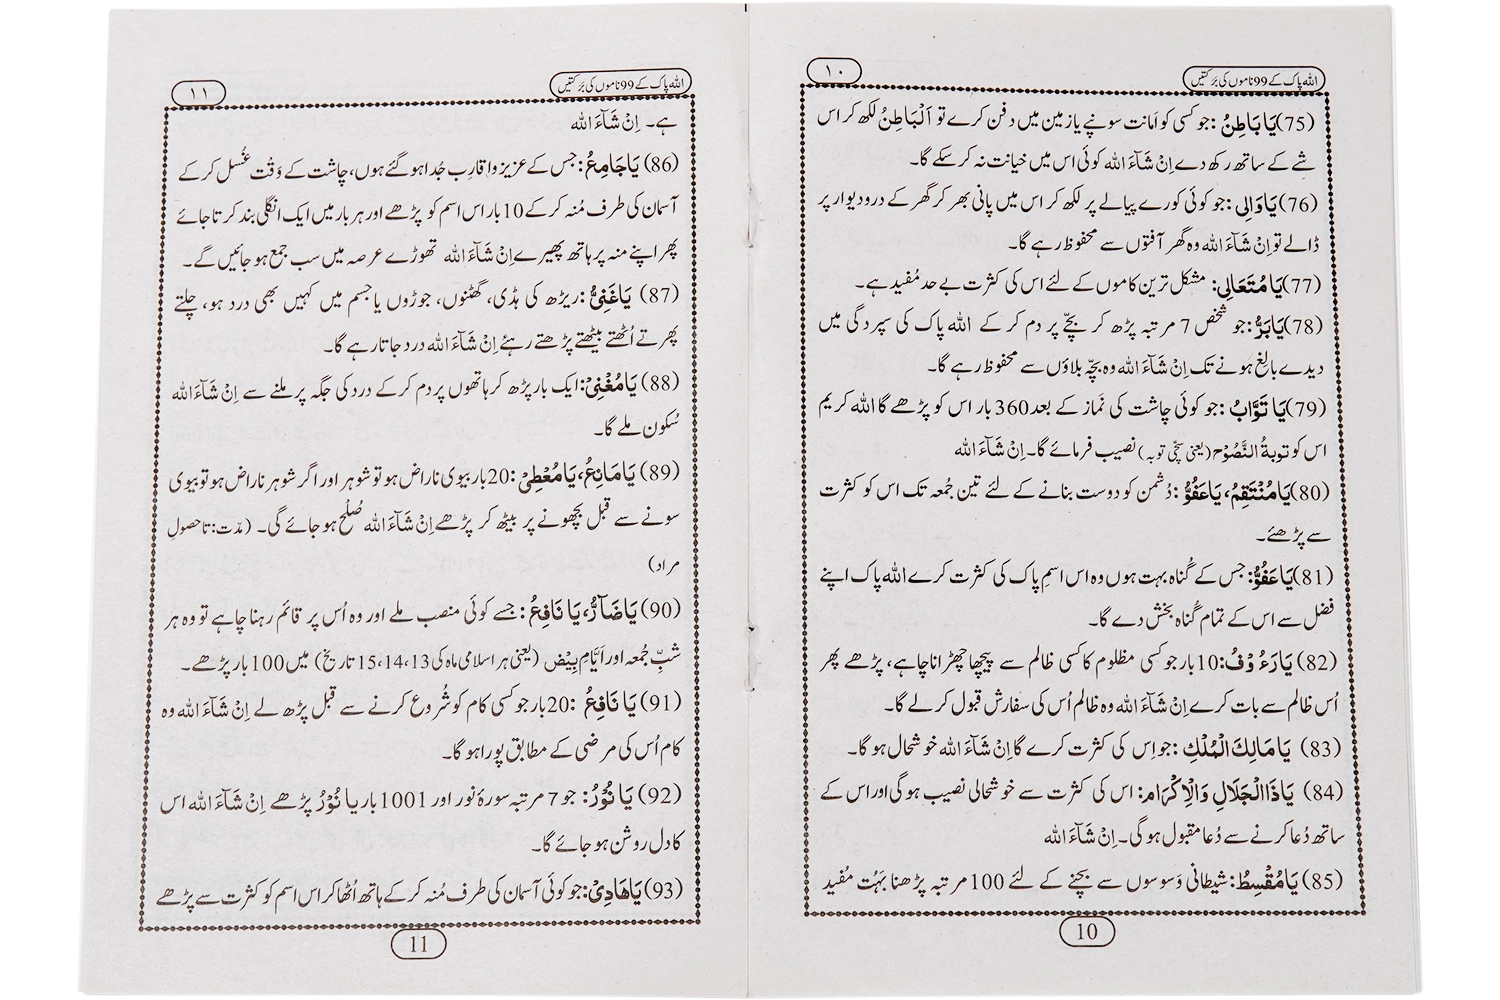 اللہ پاک کے 99 ناموں کی برکتیں
۱۰
(75) یَا بَاطِنُ: جو کسی کو اَمانت سونپے یا زمین میں دفن کرے تو اَلْبَاطِنُ لکھ کر اس
شے کے ساتھ رکھ دے اِنْ شَآءَ اللہ کوئی اس میں خیانت نہ کر سکے گا۔
(76) یَا وَالِی: جو کوئی کورے پیالے پر لکھ کر اس میں پانی بھر کر گھر کے درو دیوار پر
ڈالے تو اِنْ شَآءَ اللہ وہ گھر آفتوں سے محفوظ رہے گا۔
(77) یَا مُتَعَالِی: مشکل ترین کاموں کے لئے اس کی کثرت بے حد مُفید ہے۔
(78) یَا بَرُّ: جو شخص 7 مرتبہ پڑھ کر بچّے پر دم کر کے اللہ پاک کی سپردگی میں
دیدے بالغ ہونے تک اِنْ شَآءَ اللہ وہ بچّہ بلاؤں سے محفوظ رہے گا۔
(79) یَا تَوَّابُ: جو کوئی چاشت کی نَماز کے بعد 360 بار اس کو پڑھے گا اللہ کریم
اس کو توبۃُ النَّصُوْح (یعنی سچّی توبہ) نصیب فرمائے گا۔ اِنْ شَآءَ اللہ
(80) یَا مُنْتَقِمُ، یَا عَفُوُّ: دُشمن کو دوست بنانے کے لئے تین جُمعہ تک اس کو کثرت
سے پڑھئے۔
(81) یَا عَفُوُّ: جس کے گُناہ بہت ہوں وہ اس اسمِ پاک کی کثرت کرے اللہ پاک اپنے
فضل سے اس کے تمام گُناہ بخش دے گا۔
(82) یَا رَءُوْفُ: 10 بار جو کسی مظلوم کا کسی ظالم سے پیچھا چھڑانا چاہے، پڑھے پھر
اُس ظالم سے بات کرے اِنْ شَآءَ اللہ وہ ظالم اُس کی سفارش قبول کر لے گا۔
(83) یَا مَالِكَ الْمُلْكِ: جو اِس کی کثرت کرے گا اِنْ شَآءَ اللہ خوشحال ہو گا۔
(84) یَا ذَا الْجَلَالِ وَالْاِکْرَام: اس کی کثرت سے خوشحالی نصیب ہو گی اور اس کے
ساتھ دُعا کرنے سے دُعا مقبول ہو گی۔ اِنْ شَآءَ اللہ
(85) یَا مُقْسِطُ: شیطانی وَسوسوں سے بچنے کے لئے 100 مرتبہ پڑھنا بہُت مُفید
10
اللہ پاک کے 99 ناموں کی برکتیں
۱۱
ہے۔ اِنْ شَآءَ اللہ
(86) یَا جَامِعُ: جس کے عزیز و اقارِب جُدا ہو گئے ہوں، چاشت کے وَقت غُسل کر کے
آسمان کی طرف مُنہ کر کے 10 بار اس اسم کو پڑھے اور ہر بار میں ایک انگلی بند کرتا جائے
پھر اپنے منہ پر ہاتھ پھیرے اِنْ شَآءَ اللہ تھوڑے عرصہ میں سب جمع ہو جائیں گے۔
(87) یَا غَنِیُّ: ریڑھ کی ہڈی، گھٹنوں، جوڑوں یا جسم میں کہیں بھی درد ہو، چلتے
پھرتے اُٹھتے بیٹھتے پڑھتے رہئے اِنْ شَآءَ اللہ درد جاتا رہے گا۔
(88) یَا مُغْنِیْ: ایک بار پڑھ کر ہاتھوں پر دم کر کے درد کی جگہ پر ملنے سے اِنْ شَآءَ اللہ
سُکون ملے گا۔
(89) یَا مَانِعُ، یَا مُعْطِیْ: 20 بار بیوی ناراض ہو تو شوہر اور اگر شوہر ناراض ہو تو بیوی
سونے سے قبل بچھونے پر بیٹھ کر پڑھے اِنْ شَآءَ اللہ صُلْح ہو جائے گی۔ (مدّت: تا حصولِ
مراد)
(90) یَا ضَآرُّ، یَا نَافِعُ: جسے کوئی منصب ملے اور وہ اُس پر قائم رہنا چاہے تو وہ ہر
شبِ جُمعہ اور اَیَّامِ بِیْض (یعنی ہر اسلامی ماہ کی 13، 14، 15 تاریخ) میں 100 بار پڑھے۔
(91) یَا نَافِعُ: 20 بار جو کسی کام کو شُروع کرنے سے قبل پڑھ لے اِنْ شَآءَ اللہ وہ
کام اُس کی مرضی کے مطابق پورا ہو گا۔
(92) یَا نُوْرُ: جو 7 مرتبہ سورۂ نور اور 1001 بار یَا نُوْرُ پڑھے اِنْ شَآءَ اللہ اس
کا دل روشن ہو جائے گا۔
(93) یَا ہَادِیْ: جو کوئی آسمان کی طرف مُنہ کر کے ہاتھ اُٹھا کر اس اسم کو کثرت سے پڑھے
11